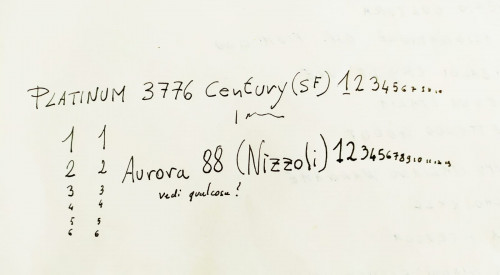 PLATINUM 3776 Century (SF) 1 2 3 4 5 6 7 8 9 10
1 1
2 2 Aurora 88 (Nizzoli) 1 2 3 4 5 6 7 8 9 10 11 12 13
3 3 vedi qualcosa!
4 4
5 5
6 6